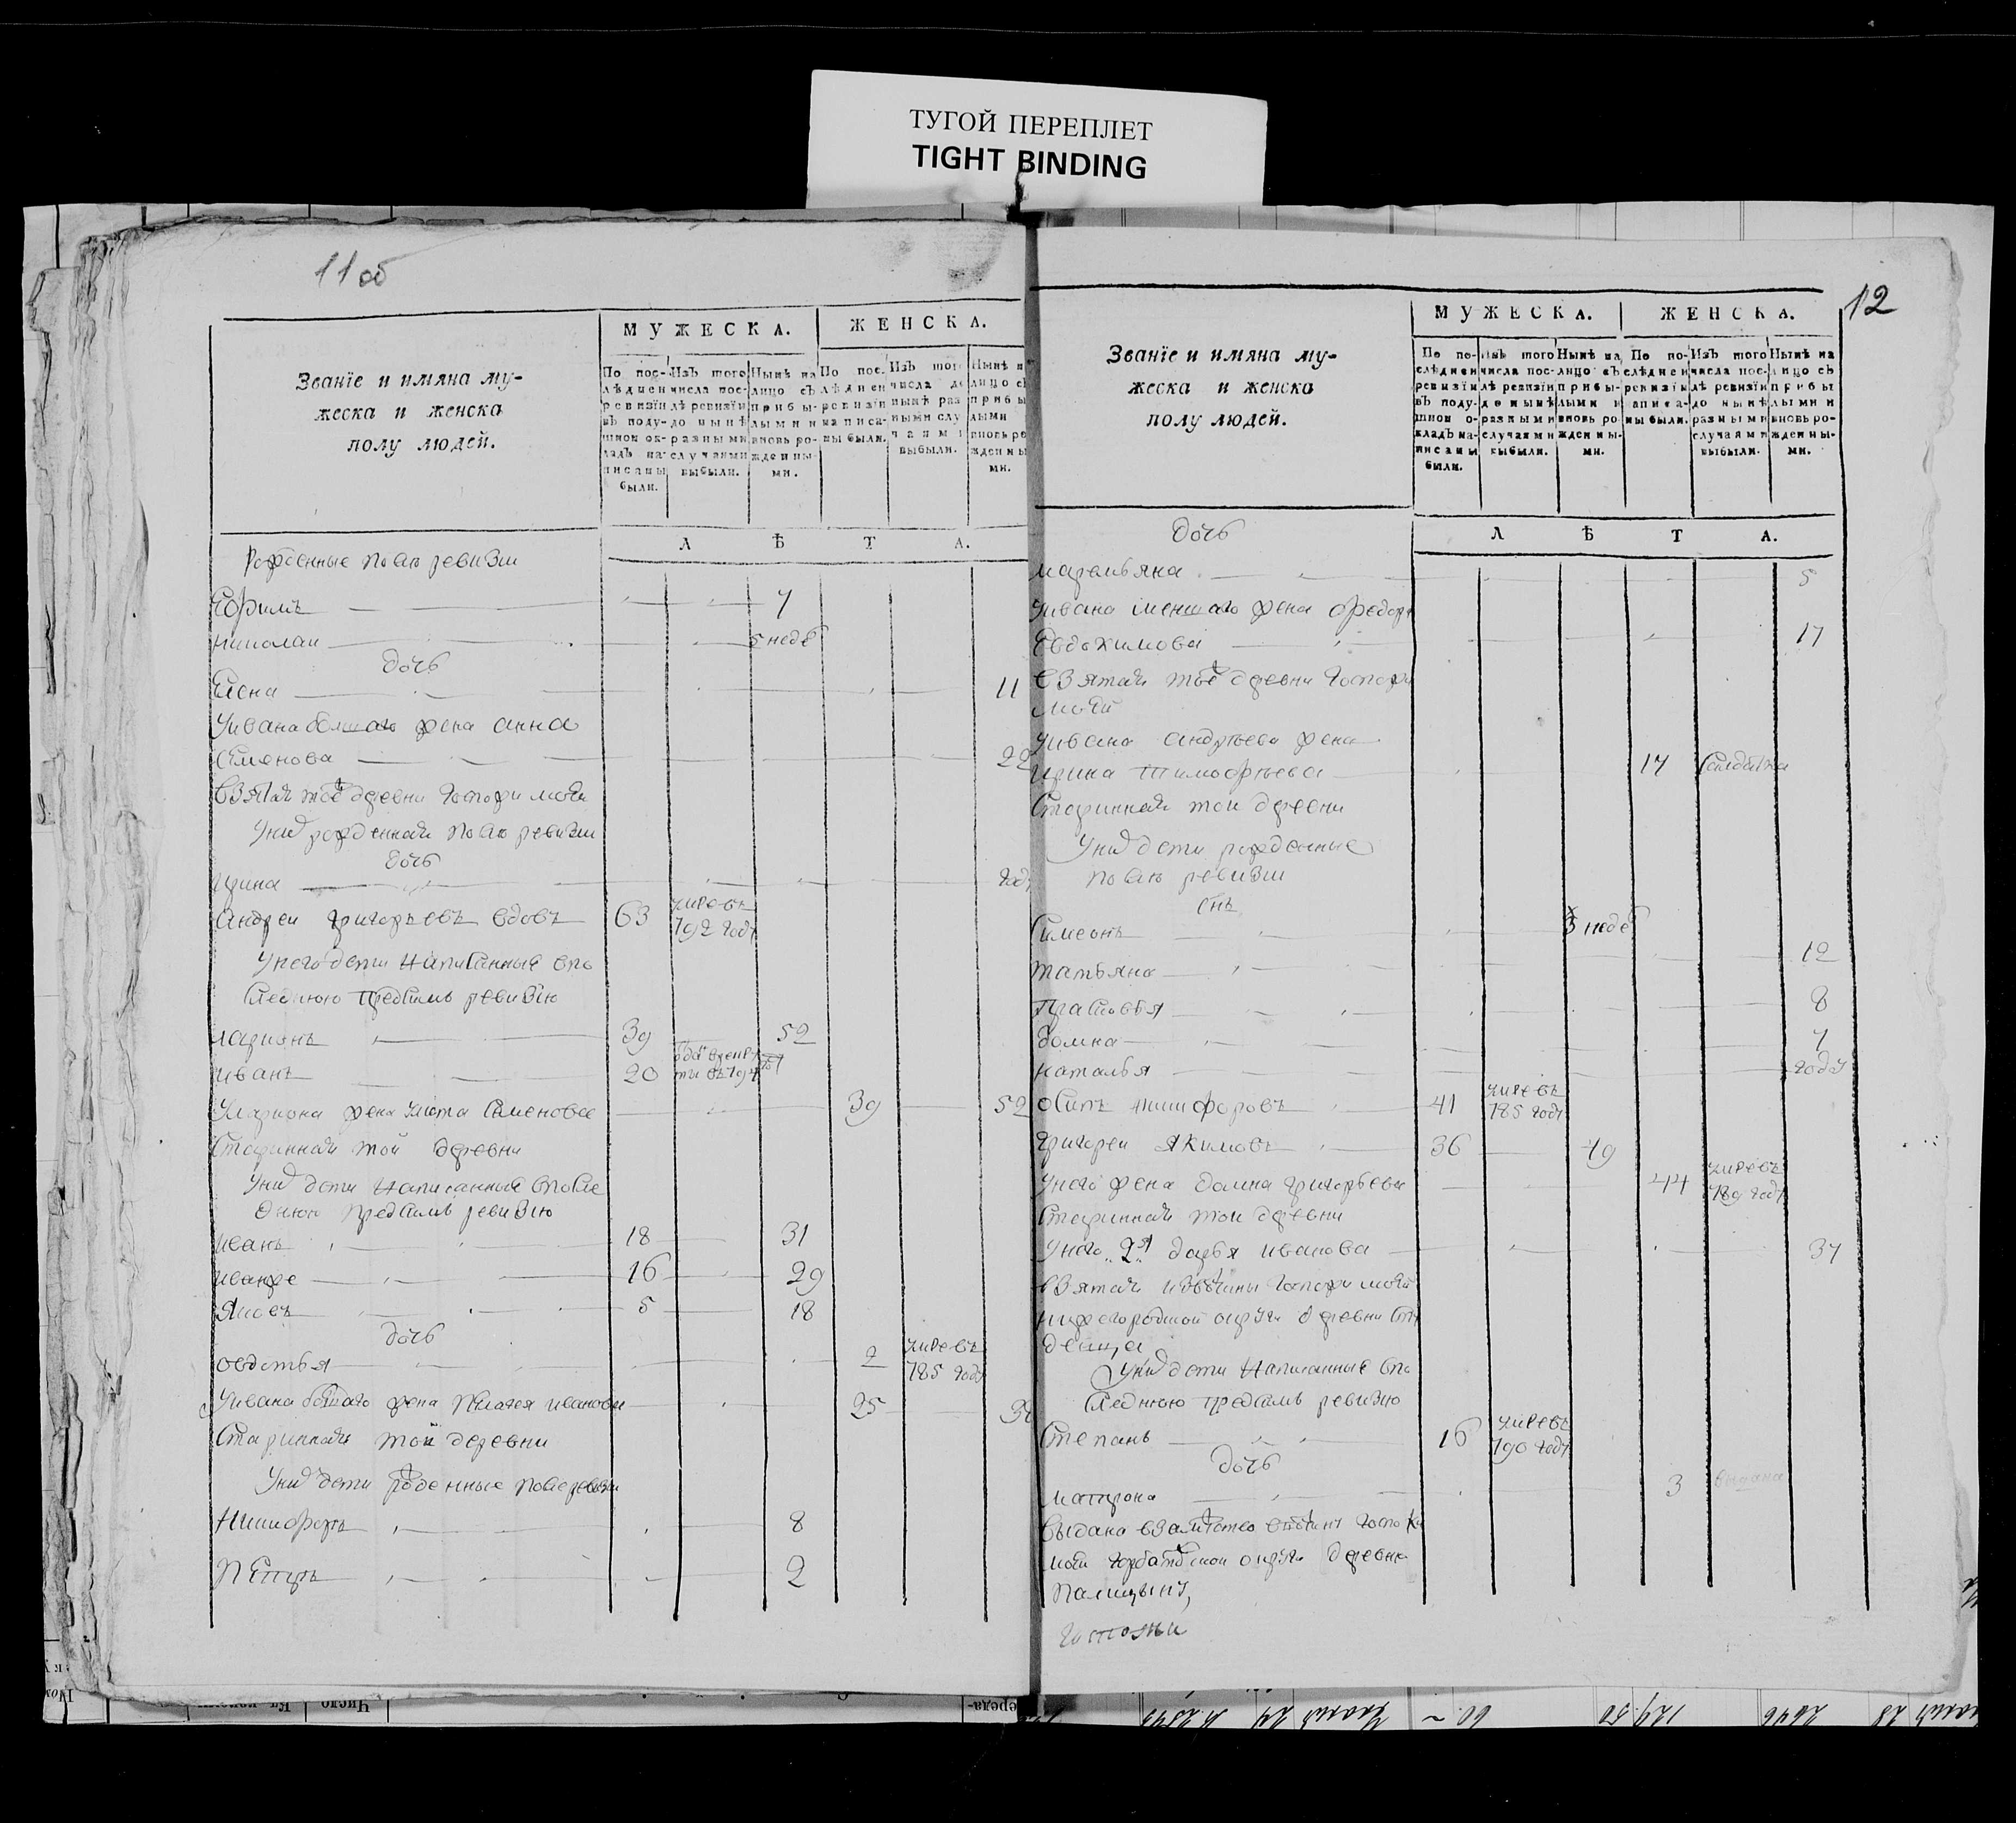 ТУГОЙ ПЕРЕПЛЕТ
TIGHT BINDING
11 об
Званїе и имяна му-
жеска и женска
полу людей.
МУЖЕСКА.
ЖЕНСКА.
По пос-
лѣдней
ревизїи
въ поду-
шной ок-
ладъ на-
писаны
были.
Изъ того
числа пос-
лѣ ревизїи
до нынѣ
разными
случаями
выбыли.
Нынѣ на
лицо съ
прибы-
лыми и
вновь ро-
жденны-
ми.
По пос-
лѣдней
ревизїи
написа-
ны были.
Изъ того
числа до
нынѣ раз
ными слу
чаями
выбыли.
Нынѣ н
лицо съ
прибы
лыми
вновь ро
жденны
ми.
Л Ѣ Т А.
рожденные после ревизии
Ефимъ 7
николаи 5 неде
дочь
Елена 11
Уивана болшаго жена анна
Семенова 22
взятая тое деревни госпожи моеи
Унихъ рожденная после ревизии
дочь
ирина году
Андреи григорьевъ вдовъ 63 умре въ 792 году
Унего дети написанные впо
следнюю пред симъ ревизїю
ларионъ 39 52
иванъ 20
Улариона жена улита Семенова 39 52
Старинная тои деревни
Унихъ дети написанные впосле
днюю пред симъ ревизїю
иванъ 18 31
иванже 16 29
яковъ 5 18
дочь
овдотья 2 умре въ 785 году
Уивана болшаго жена Пелагея иванова 25
Старинная тои деревни
Унихъ дети рожденные после ревизии
Никифоръ 8
Петръ 2
12
Званїе и имяна му-
жеска и женска
полу людей.
МУЖЕСКА.
ЖЕНСКА.
По по-
слѣдней
ревизїи
въ поду-
шной о-
кладъ на-
писаны
были.
Изъ того
числа пос-
лѣ ревизїи
до нынѣ
разными
случаями
выбыли.
Нынѣ на
лицо съ
прибы-
лыми и
вновь ро-
жденны-
ми.
По по-
слѣдней
ревизїи
написа-
ны были.
Изъ того
числа пос-
лѣ ревизїи
до нынѣ
разными
случаями
выбыли.
Нынѣ на
лицо съ
прибы
лыми и
вновь ро-
жденны-
ми.
Л Ѣ Т А.
дочь
маремьяна 5
Уивана меншаго жена федора
Евдокимова 17
взятая тое деревни госпожи
моеи
Уивана андреева жена
ирина тимофеева 17 Солдатка
Старинная тои деревни
Унихъ дети рожденные
после ревизии
снъ
Симеонъ 3 неде
татьяна 12
Прасковья 8
домна 7
наталья году
осипъ никифоровъ 41 умре въ 785 году
григореи якимовъ 36 49
Унего жена домна григорьева 44 умре въ 789 году
Старинная тои деревни
Унего 2я дарья иванова 37
взятая извотчины госпожи моеи
нижегородской округи деревни
Унихъ дети написанные впо
следнюю пред симъ ревизию
Степанъ 16 умре въ 790 году
дочь
матрона 3 выдана
выдана взамужство ввотчину госпожи
моеи горбатовскои округи деревню
Палицыну,
госпожи